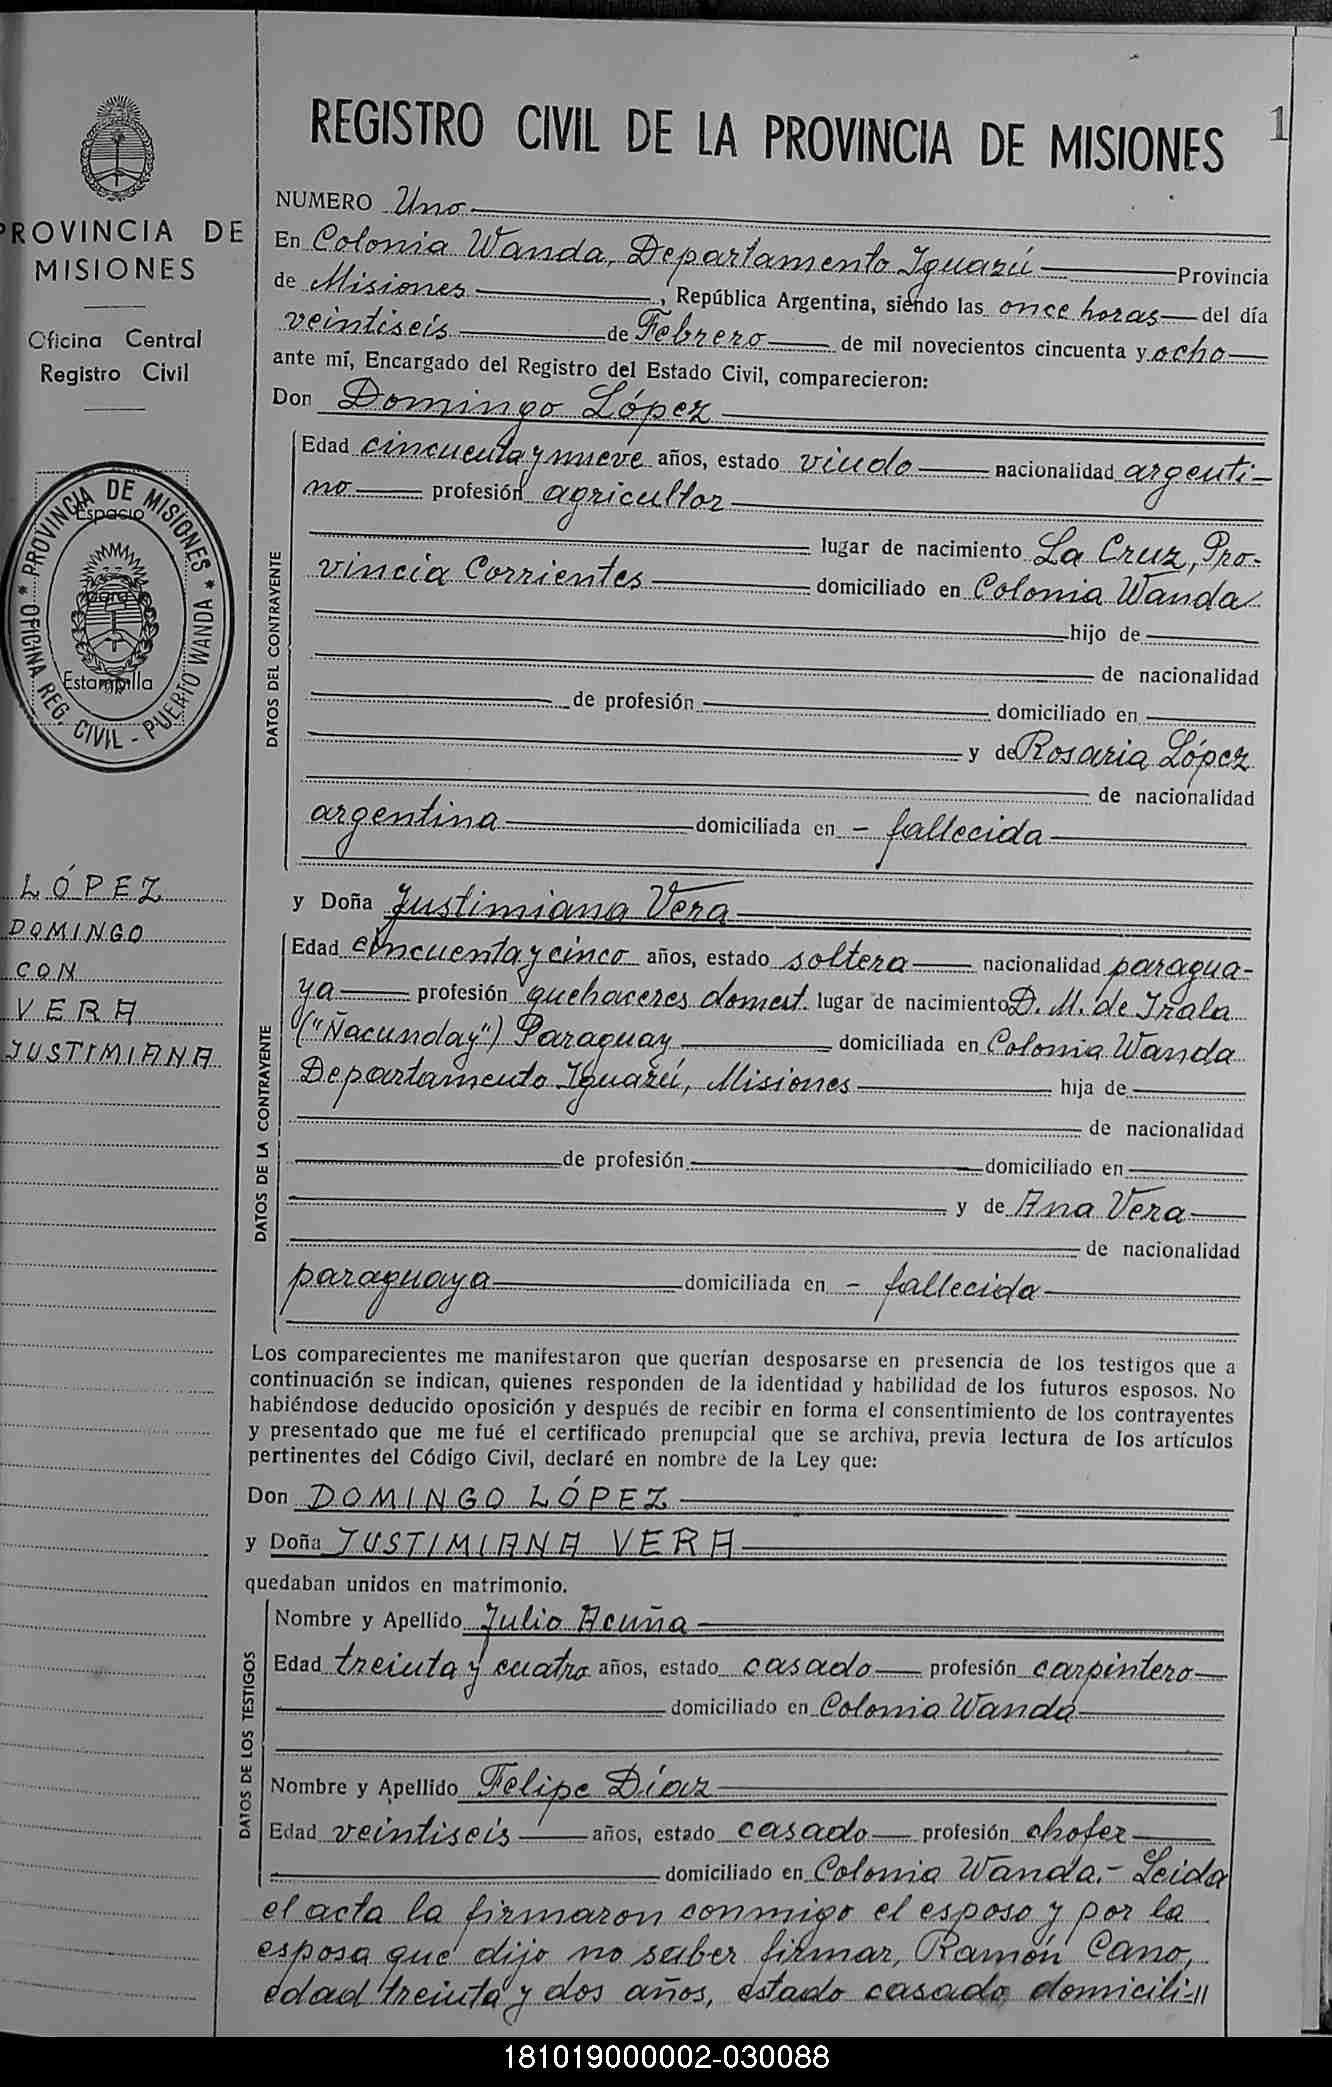 REGISTRO CIVIL DE LA PROVINCIA DE MISIONES
1
PROVINCIA DE
MISIONES
Oficina Central
Registro Civil
* PROVINCIA DE MISIONES *
OFICINA REG. CIVIL - PUERTO WANDA
Espacio
para
Estampilla
LÓPEZ
DOMINGO
CON
VERA
JUSTIMIANA
NUMERO Uno
En Colonia Wanda, Departamento Iguazú Provincia
de Misiones, República Argentina, siendo las once horas del día
veintiseis de Febrero de mil novecientos cincuenta y ocho
ante mí, Encargado del Registro del Estado Civil, comparecieron:
Don Domingo López
DATOS DEL CONTRAYENTE
Edad cincuenta y nueve años, estado viudo nacionalidad argenti-
no profesión agricultor
lugar de nacimiento La Cruz, Pro-
vincia Corrientes domiciliado en Colonia Wanda
hijo de
de nacionalidad
de profesión domiciliado en
y de Rosaria López
de nacionalidad
argentina domiciliada en - fallecida
y Doña Justimiana Vera
DATOS DE LA CONTRAYENTE
Edad cincuenta y cinco años, estado soltera nacionalidad paragua-
ya profesión quehaceres domest. lugar de nacimiento D. M. de Irala
("Ñacunday") Paraguay domiciliada en Colonia Wanda
Departamento Iguazú, Misiones hija de
de nacionalidad
de profesión domiciliado en
y de Ana Vera
de nacionalidad
paraguaya domiciliada en - fallecida
Los comparecientes me manifestaron que querían desposarse en presencia de los testigos que a
continuación se indican, quienes responden de la identidad y habilidad de los futuros esposos. No
habiéndose deducido oposición y después de recibir en forma el consentimiento de los contrayentes
y presentado que me fué el certificado prenupcial que se archiva, previa lectura de los artículos
pertinentes del Código Civil, declaré en nombre de la Ley que:
Don DOMINGO LÓPEZ
y Doña JUSTIMIANA VERA
quedaban unidos en matrimonio.
DATOS DE LOS TESTIGOS
Nombre y Apellido Julio Acuña
Edad treinta y cuatro años, estado casado profesión carpintero
domiciliado en Colonia Wanda
Nombre y Apellido Felipe Díaz
Edad veintiseis años, estado casado profesión chofer
domiciliado en Colonia Wanda.- Leida
el acta la firmaron conmigo el esposo y por la
esposa que dijo no saber firmar, Ramón Cano,
edad treinta y dos años, estado casado domicili-//
181019000002-030088